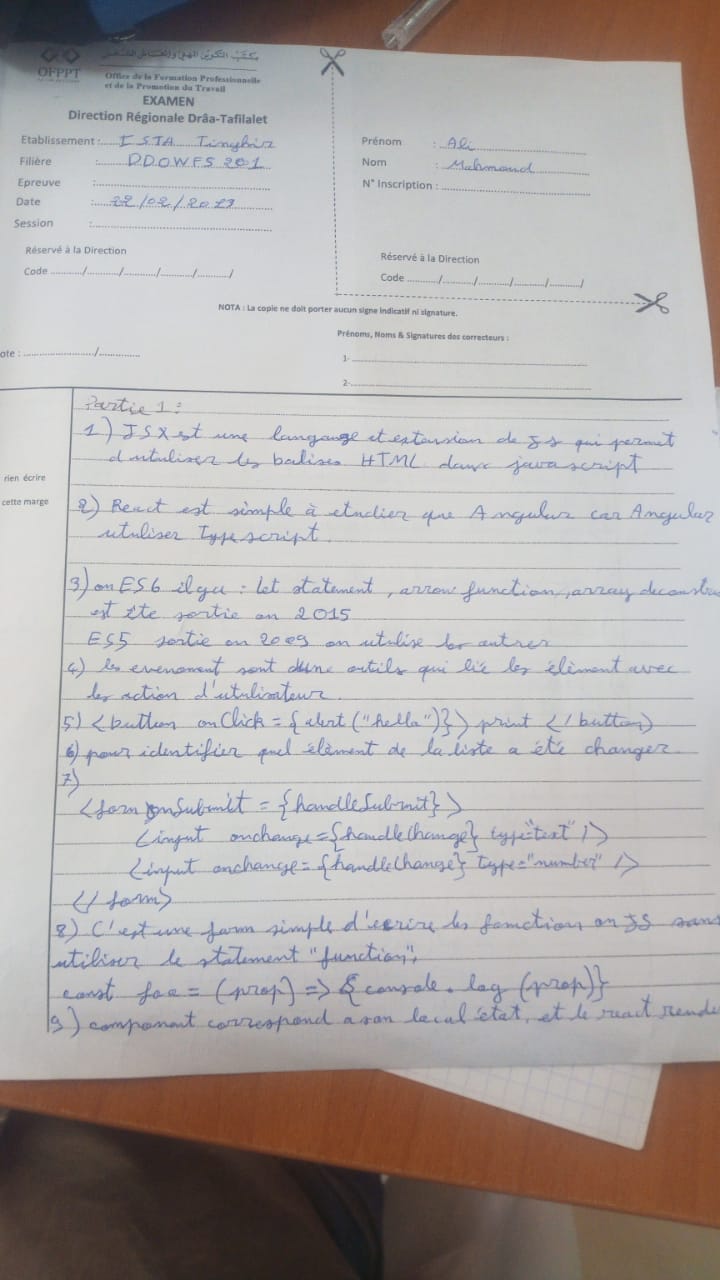 مكتب التكوين المهني وإنعاش الشغل
OFPPT
Office de la Formation Professionnelle
et de la Promotion du Travail
EXAMEN
Direction Régionale Drâa-Tafilalet
Etablissement : ISTA Tinghir
Filière : DDOWFS 201
Epreuve :
Date : 22/02/2023
Session :
Réservé à la Direction
Code ........../........../........../........../........../
Prénom : Ali
Nom : Mahmoud
N° Inscription :
Réservé à la Direction
Code ........../........../........../........../........../
NOTA : La copie ne doit porter aucun signe indicatif ni signature.
Prénoms, Noms & Signatures des correcteurs :
ote : ........................./..............
1-
2-
rien écrire
cette marge
Partie 1 :
1) JSX est une langange et extension de JS qui permet
d'utuliser les balises HTML dans javascript
2) React est simple à etudier que Angular car Angular
utuliser Typescript.
3) on ES6 il ya : let statement, arrow function, array deconstru
est été sortie en 2015
ES5 sortie en 2009 on utilise les autres
4) les evenement sont outils qui lié les élèment avec
les action d'utulisateur.
5) <button onClick={alert("hello")}> print </button>
6) pour identifier quel élèment de la liste a été changer.
7)
<form onSubmit = {handleSubmit}>
<input onchange={handleChange} type="text" />
<input onchange={handleChange} type="number" />
</form>
8) C'est une form simple d'ecrire les fonction en JS sans
utiliser le statement "function",
const foo = (prop) => {console.log (prop)}
9) component correspond a son local état, et le react rende